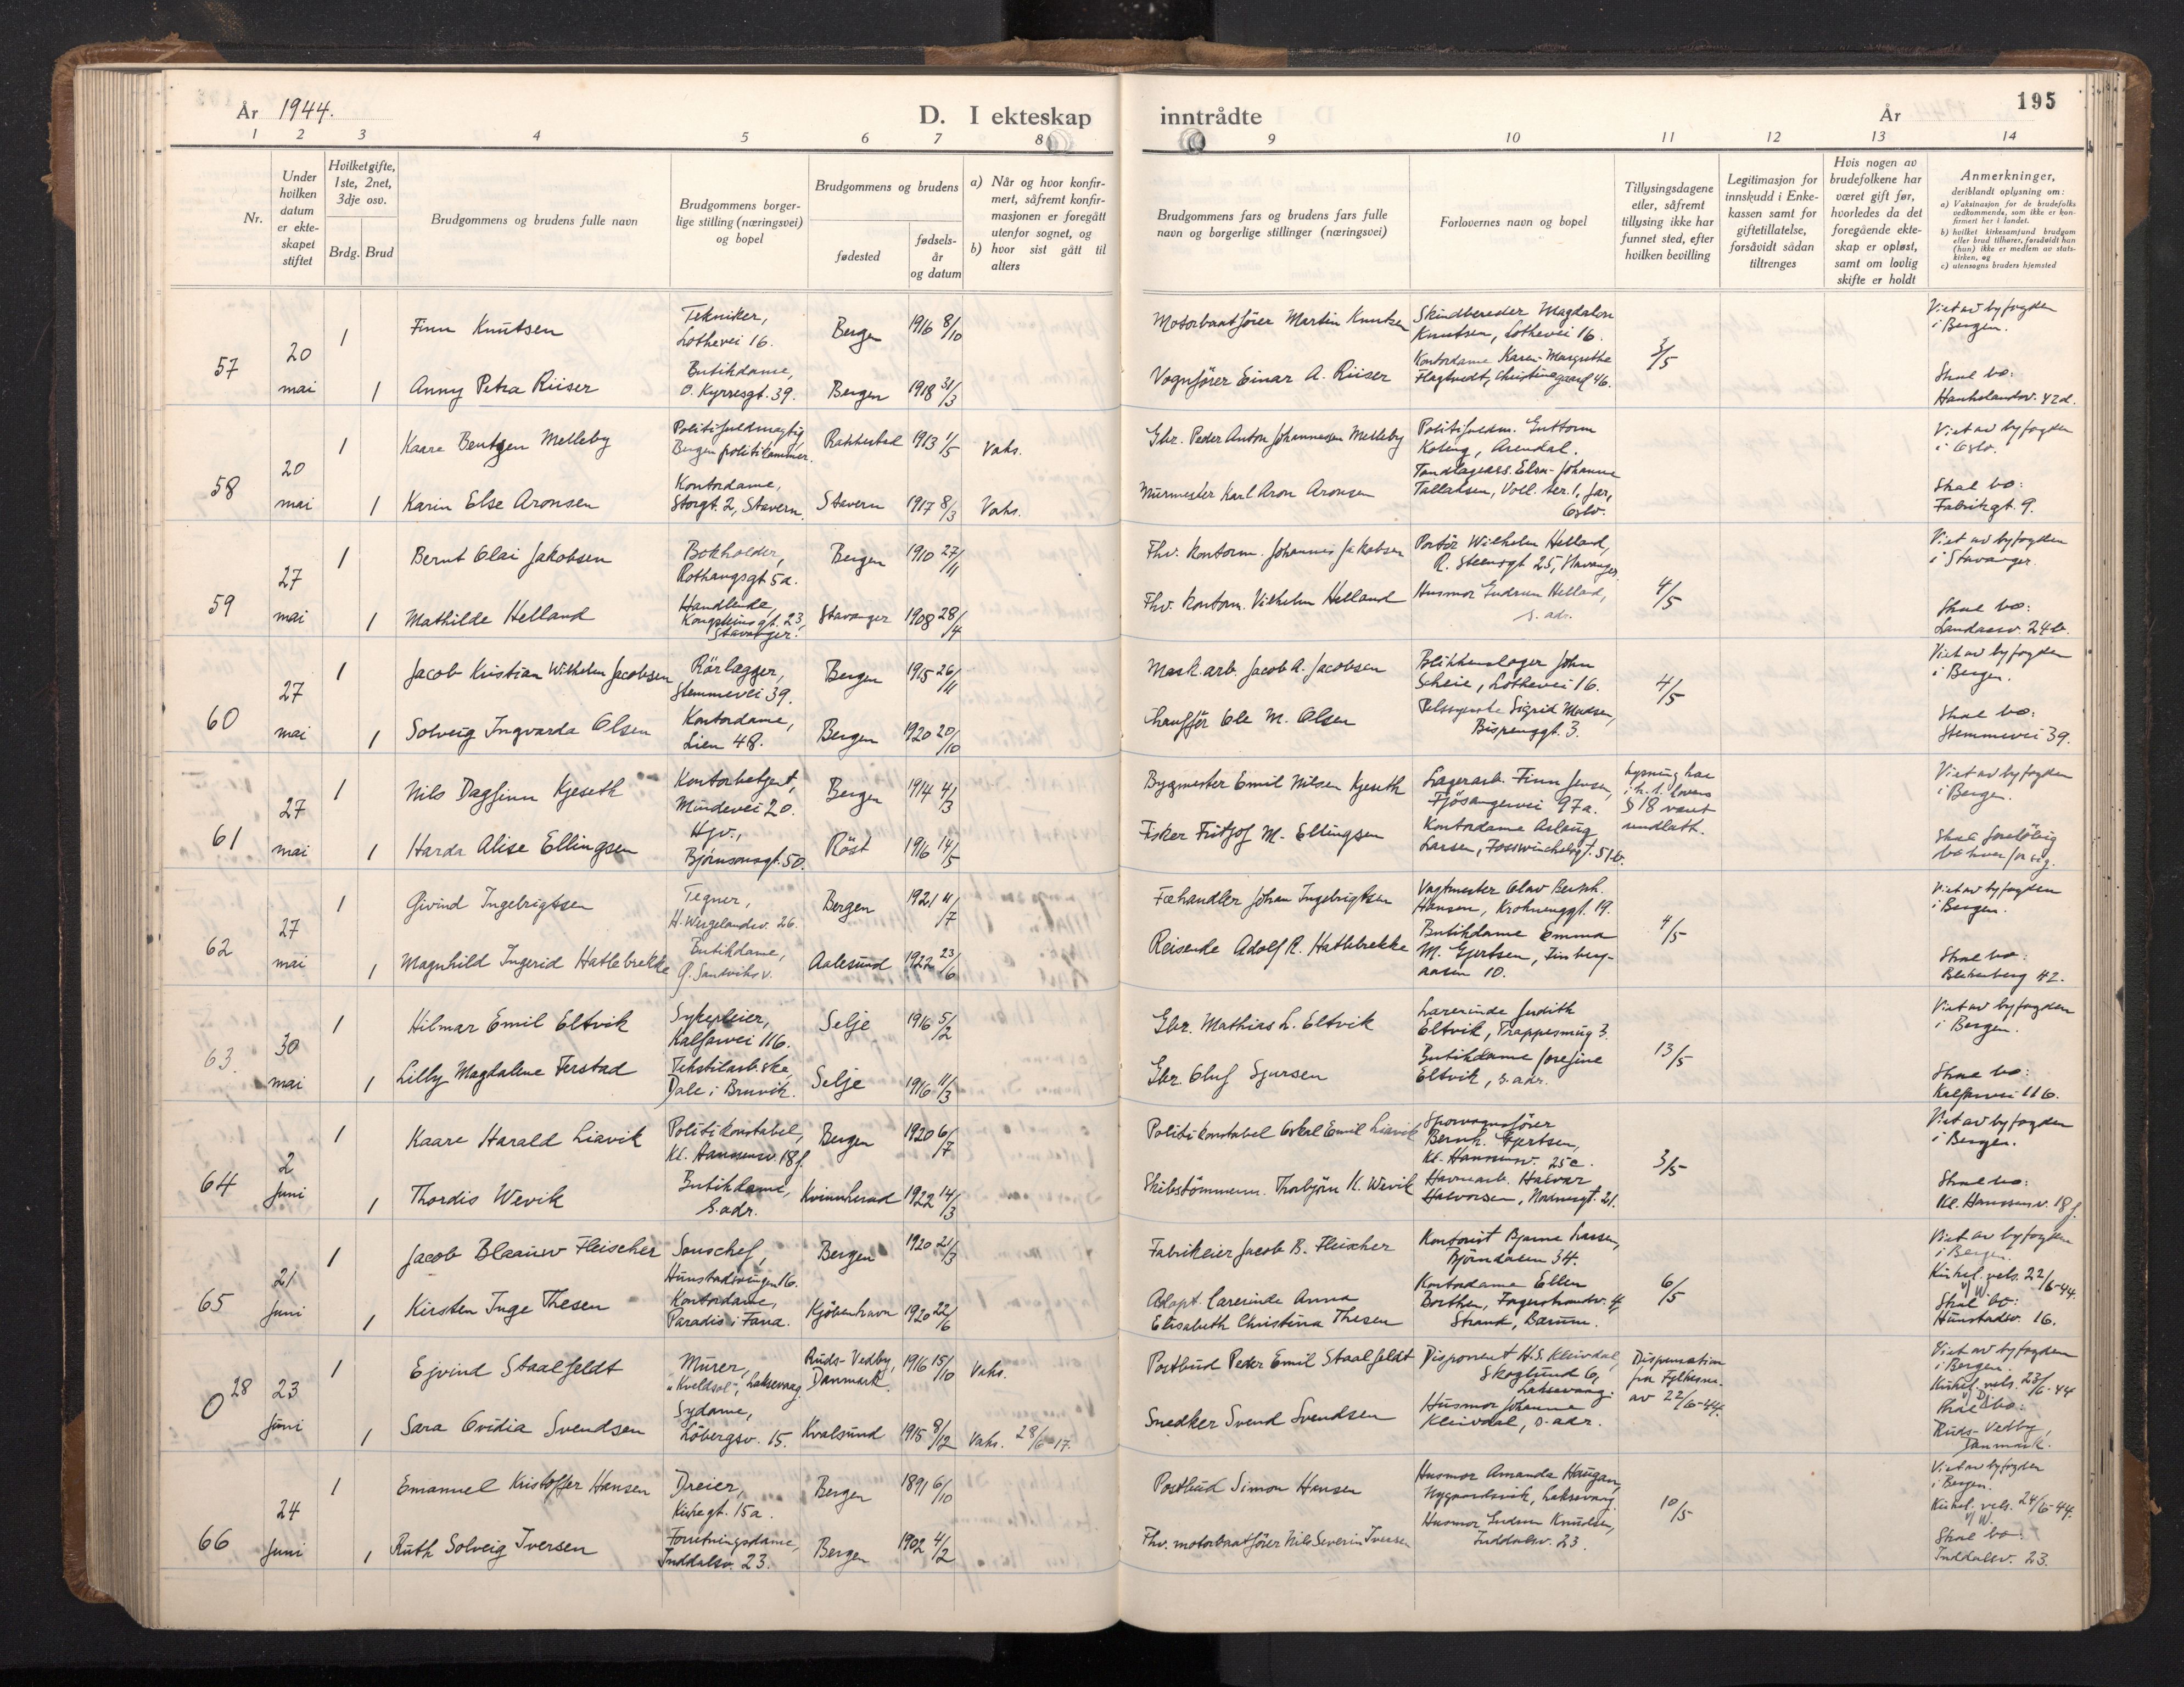 År 1944.
D. I ekteskap inntrådte
År
195
1 2 3 4 5 6 7 8 9 10 11 12 13 14
Nr.
Under hvilken datum er ekteskapet stiftet
Hvilket gifte, 1ste, 2net, 3dje osv.
Brdg. Brud
Brudgommens og brudens fulle navn
Brudgommens borgerlige stilling (næringsvei) og bopel
Brudgommens og brudens
fødested
fødselsår og datum
a) Når og hvor konfirmert, såfremt konfirmasjonen er foregått utenfor sognet, og
b) hvor sist gått til alters
Brudgommens fars og brudens fars fulle navn og borgerlige stillinger (næringsvei)
Forlovernes navn og bopel
Tillysingsdagene eller, såfremt tillysing ikke har funnet sted, efter hvilken bevilling
Legitimasjon for innskudd i Enkekassen samt for giftetillatelse, forsåvidt sådan tiltrenges
Hvis nogen av brudefolkene har været gift før, hvorledes da det foregående ekteskap er opløst, samt om lovlig skifte er holdt
Anmerkninger,
deriblandt oplysning om:
a) Vaksinasjon for de brudefolks vedkommende, som ikke er konfirmert her i landet.
b) hvilket kirkesamfund brudgom eller brud tilhører, forsåvidt han (hun) ikke er medlem av statskirken, og
c) utensogns bruders hjemsted
57
20 mai
1 Finn Knutsen
Tekniker, Lothevei 16.
Bergen 1916 8/10
Motorbaatfører Martin Knutsen
Skindbereder Magdalon Knutsen, Lothevei 16.
3/5
Viet av byfogden i Bergen.
1 Anny Petra Riiser
Butikdame, O. Kyrresgt. 39.
Bergen 1918 31/3
Vognfører Einar A. Riiser
Kontordame Karen-Margrethe Flagtvedt, Christinegaard 46.
Skal bo: Haukelandsv. 42d.
58
20 mai
1 Kaare Bentzen Melleby
Politifuldmægtig Bergen politikammer.
Rakkestad 1913 1/5
Vaks.
Gbr. Peder Anton Johannessen Melleby
Politifuldm. Guttorm Arendal.
Viet av byfogden i Oslo.
1 Karin Else Aronsen
Kontordame, Storgt. 2, Stavern.
Stavern 1917 8/3
Vaks.
Murmester Karl Aron Aronsen
Tandlægeass. Elsa-Johanne Tallaksen, Voll. ter. 1, Jar, Oslo.
Skal bo: Fabrikgt. 9.
59
27 mai
1 Bernt Olai Jakobsen
Bokholder, Rothaugsgt. 5a.
Bergen 1910 27/11
Fhv. kontorm. Johannes Jakobsen
Portör Wilhelm Helland, R. Steensgt. 25, Stavanger.
4/5
Viet av byfogden i Stavanger.
1 Mathilde Helland
Handlende, Kongsteinsgt. 23, Stavanger.
Stavanger 1908 28/4
Fhv. kontorm. Vilhelm Helland
Husmor Gudrun Helland, s. adr.
Skal bo: Landaasv. 24b.
60
27 mai
1 Jacob Kristian Wilhelm Jacobsen
Rörlægger, Stemmevei 39.
Bergen 1915 26/11
Mask.arb. Jacob A. Jacobsen
Blikkenslager John Scheie, Lothevei 16.
4/5
Viet av byfogden i Bergen.
1 Solveig Ingvarda Olsen
Kontordame, Lien 48.
Bergen 1920 20/10
Chauffør Ole M. Olsen
Pelssyerske Sigrid Madsen, Bispenggt. 3.
Skal bo: Stemmevei 39.
61
27 mai
1 Nils Dagfinn Kjeseth
Kontorbetjent, Mindevei 20.
Bergen 1914 4/3
Bygmester Emil Nilsen Kjeseth
Lagerarb. Finn Jensen, Fjösangervei 97a.
Lysning har i h. t. lovens § 18 været undlatt.
Viet av byfogden i Bergen.
1 Harda Alise Ellingsen
Hjv., Bjørnsonsgt. 50.
Röst 1916 14/5
Fisker Fritjof M. Ellingsen
Kontordame Aslaug Larsen, Fosswinckelsgt. 51b.
Skal foreløbig bo hver for seg.
62
27 mai
1 Øivind Ingebrigtsen
Tegner, H. Wergelandsv. 26.
Bergen 1921 11/7
Fæhandler Johan Ingebrigtsen
Vagtmester Olav Bernh. Hansen, Krohnenggt. 19.
4/5
Viet av byfogden i Bergen.
1 Magnhild Ingerid Hatlebrekke
Butikdame, G. Sandviksv.
Aalesund 1922 23/6
Reisende Adolf R. Hatlebrekke
Butikdame Emma M. Gjertsen, aasen 10.
Skal bo: Blekenberg 42.
63.
30 mai
1 Hilmar Emil Eltvik
Sykepleier, Kalfarvei 116.
Selje 1916 5/2
Gbr. Mathias L. Eltvik
Lærerinde Judith Eltvik, Trappesmug 3.
13/5
Viet av byfogden i Bergen.
1 Lilly Magdalene Ferstad
Tekstilarb.ske, Dale i Bruvik.
Selje 1916 11/3
Gbr. Oluf Sjursen
Butikdame Josefine Eltvik, s. adr.
Skal bo: Kalfarvei 116.
64
2 Juni
1 Kaare Harald Liavik
Politikonstabel, Kl. Hanssensv. 18f.
Bergen 1920 6/7
Politikonstabel Oskal Emil Liavik
Sporvognsfører Bernh. Gjertsen, Kl. Hanssensv. 25c.
3/5
Viet av byfogden i Bergen.
1 Thordis Wevik
Butikdame, s. adr.
Kvinnherad 1922 14/3
Skibstömmerm. Thorbjørn K. Wevik
Havnearb. Halvor Halvorsen, Nordnesgt. 21.
Skal bo: Kl. Hanssensv. 18f.
65
21 Juni
1 Jacob Blaauw Fleischer
Souschef, Hunstadsvingen 16.
Bergen 1920 21/3
Fabrikeier Jacob B. Fleischer
Kontorist Bjarne Larsen, Bjørndalen 34.
6/5
Viet av byfogden i Bergen.
Kirkel. vels. 22/6-44. v/ W.
1 Kirsten Inge Thesen
Kontordame, Paradis i Fana.
Kjöbenhavn 1920 22/6
Adopt. lærerinde Anna Elisabeth Christina Thesen
Kontordame Ellen Borthen, Fagerstrandv. 4, Strand, Bærum.
Skal bo: Hunstadsv. 16.
O 28
23 Juni
1 Ejvind Staalfeldt
Murer, "Kveldsol", Laksevaag.
Ruds-Vedby, Danmark. 1916 15/10
Vaks.
Postbud Peder Emil Staalfeldt
Disponent H.S. Kleivdal, Skoglund 6, Laksevaag.
Dispensation fra Fylkesm. av 22/6-44.
Viet av byfogden i Bergen.
Kirkel. vels. 23/6-44 v/ D.
1 Sara Ovidia Svendsen
Sydame, Löbergsv. 15.
Kvalsund 1915 8/12
Vaks. 28/6-17.
Snedker Svend Svendsen
Husmor Johanne Kleivdal, s. adr.
Skal bo: Ruds-Vedby, Danmark.
66
24 Juni
1 Emanuel Kristoffer Hansen
Dreier, Kirkegt. 15a.
Bergen 1891 6/10
Postbud Simon Hansen
Husmor Amanda Haugan, Nygaardsvik, Laksevaag.
10/5
Viet av byfogden i Bergen.
Kirkel. vels. 24/6-44. v/ W.
1 Ruth Solveig Iversen
Forretningsdame, Inddalsv. 23.
Bergen 1902 4/2
Fhv. motorbaatfører Nils Severin Iversen
Husmor Gudrun Knudsen, Inddalsv. 23.
Skal bo: Inddalsv. 23.